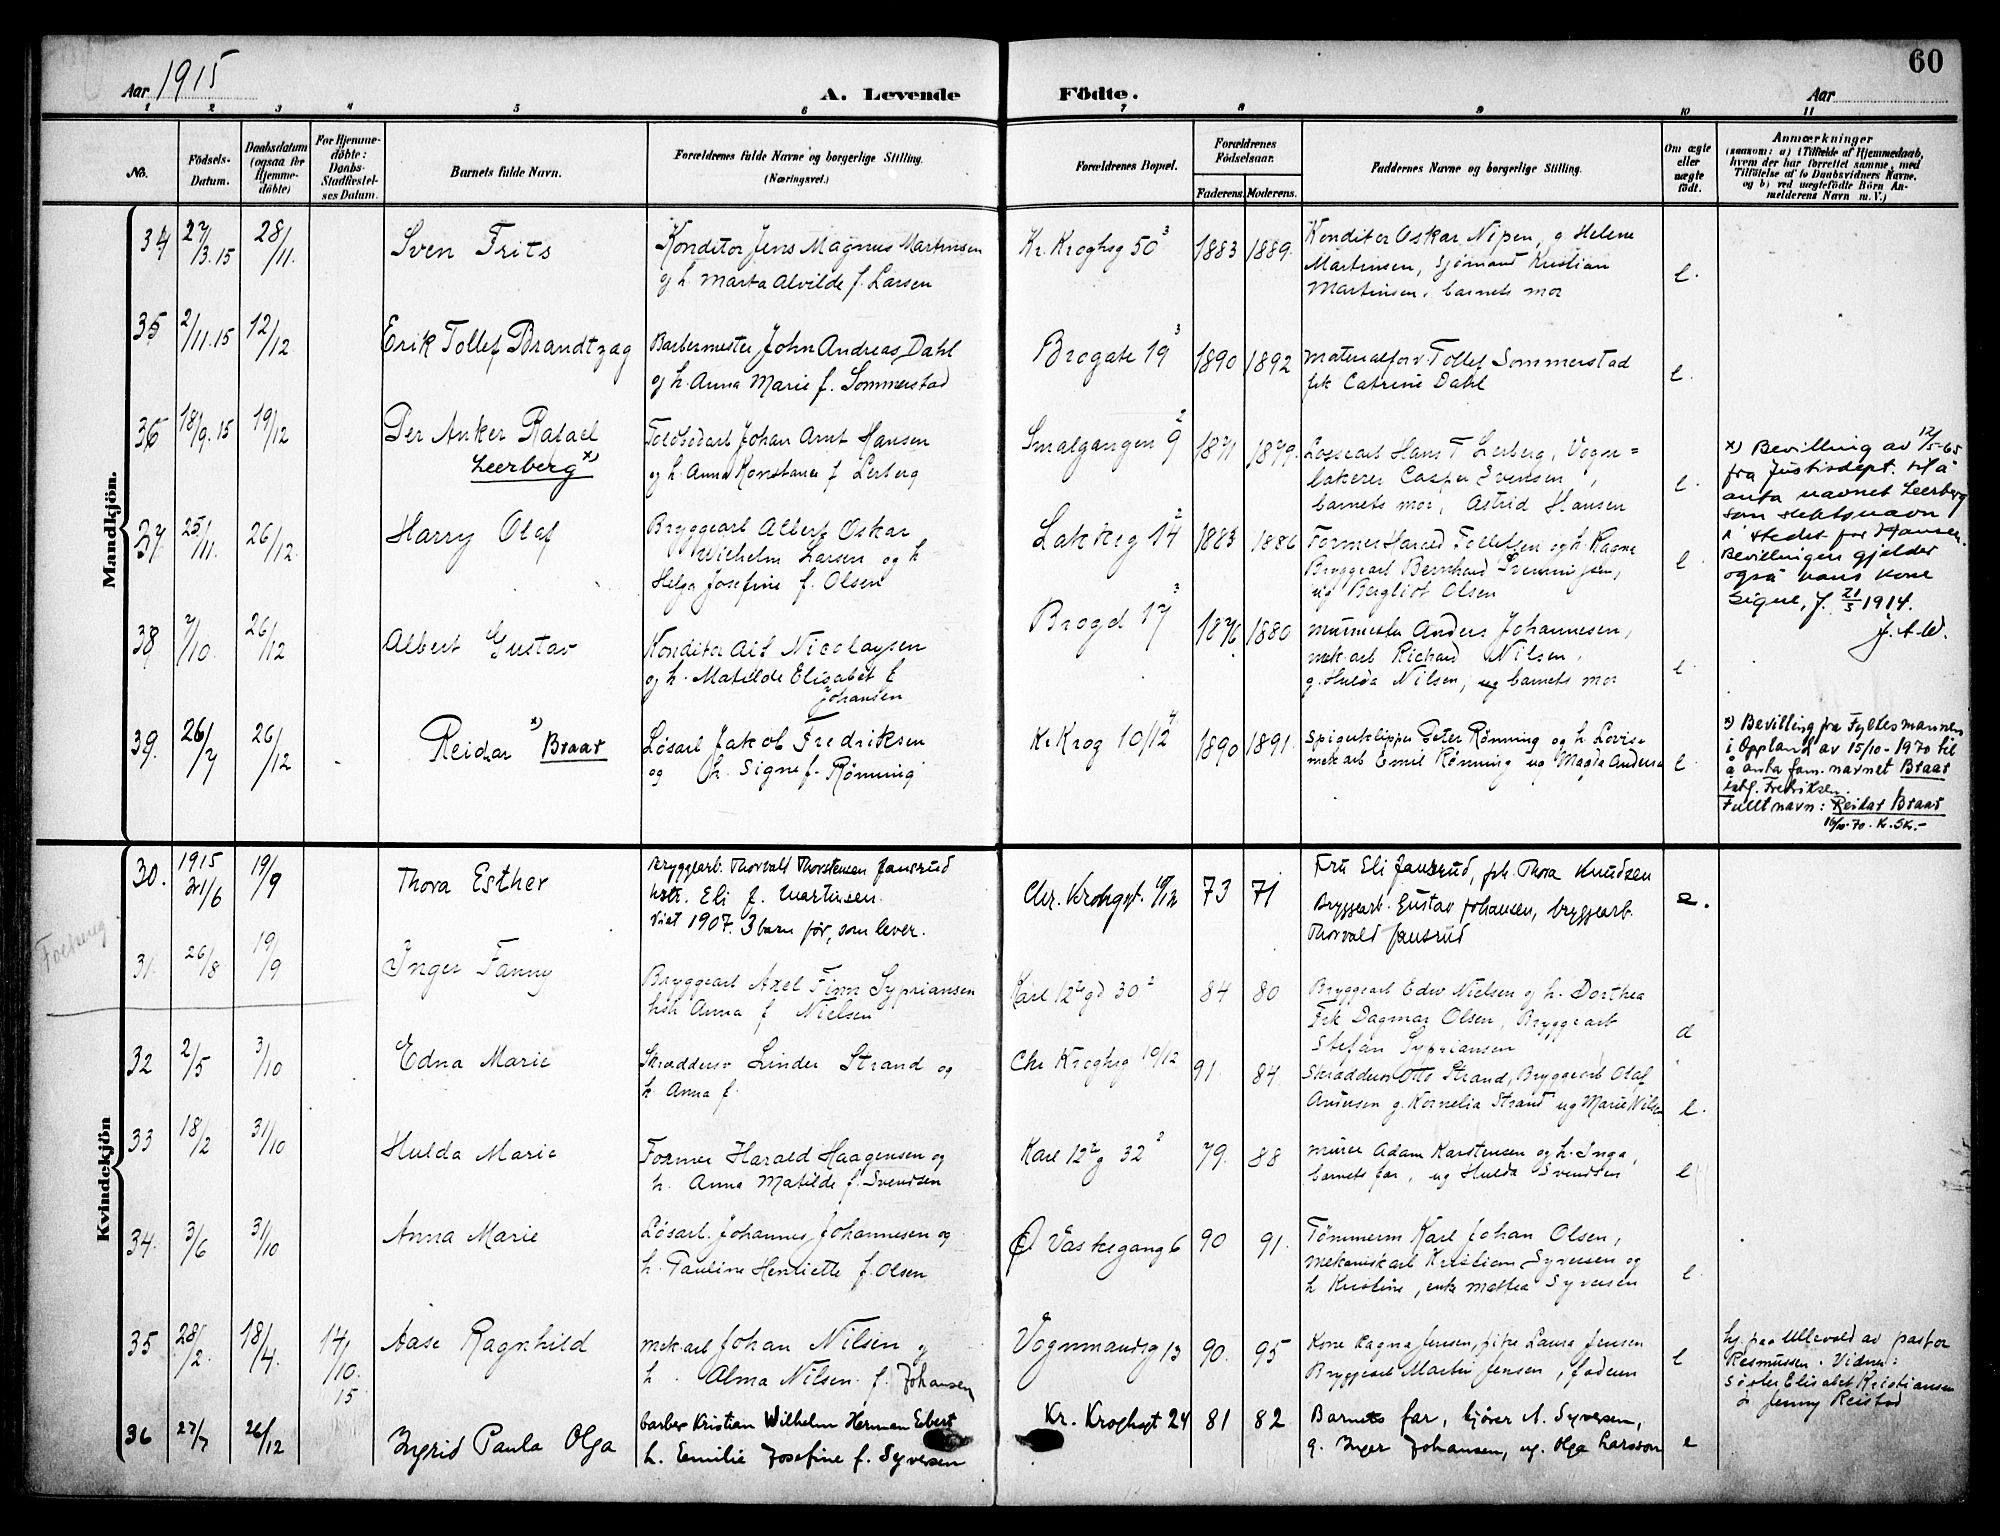 60
Aar 1915
A. Levende
Födte.
Aar
1 2 3 4 5 6 7 8 9 10 11
No.
Födsels-
Datum.
Daabsdatum
(ogsaa for
Hjemme-
döbte)
For Hjemme-
döbte:
Daabs-
Stadfæstel-
ses Datum.
Barnets fulde Navn.
Forældrenes fulde Navne og borgerlige Stilling.
(Næringsvei.)
Forældrenes Bopæl.
Forældrenes
Födselsaar.
Faderens. Moderens.
Faddernes Navne og borgerlige Stilling.
Om ægte
eller
uægte
födt.
Anmærkninger
(saasom: a) i Tilfælde af Hjemmedaab,
hvem der har forrettet samme, med
Tilföielse af to Daabsvidners Navne.
og b) ved uægtefödte Börn An-
melderens Navn m. V.)
Mandkjön.
34 27/3.15 28/11 Sven Frits
Konditor Jens Magnus Martinsen
og h. Marta Alvilde f. Larsen
Kr. Kroghsg 50³ 1883 1889.
Konditor Oskar Nipen, g Helene
Martinsen, Sjømand Kristian
Martinsen, barnets mor
e.
35 2/11.15 12/12 Erik Tollef Brandtzag
Barbermester John Andreas Dahl
og h. Anna Marie f. Sommerstad
Brogate 19³ 1890 1892
Materialforv. Tollef Sommerstad
frk Catrine Dahl
e.
36 18/9.15 19/12 Per Anker Rafael
Leerberg x)
Johan Arnt Hansen
og h. Anna Konstance f Lerberg
Smalgangen 9² 1871 1879.
Lossearb Hans T Lerberg, Vogn=
lakerer Casper Svensen,
barnets mor, Astrid Hansen
e.
x) Bevilling av 12/5-65
fra Justisdept. til å
anta navnet Leerberg
som slektsnavn
i stedet for Hansen.
Bevillingen gjelder
også hans kone
Signe, f. 21/5 1914.
J.A.W.
37 25/11 26/12 Harry Olaf
Bryggearb Albert Oskar
Wilhelm Larsen og h
Helga Josefine f. Olsen
Lakkeg 14² 1883 1886
Former Harald Tollefsen og h. Ragna
Bryggearb Bernhard Svenningsen,
og Bergliot Olsen
e.
38 7/10. 26/12 Albert Gustav
Konditor Alf Nicolaysen
og h. Matilde Elisabet f
Johansen
Brogd 17³ 1876 1880
Murmester Anders Johannesen,
mek arb Richard Nilsen,
g. Hulda Nilsen, og barnets mor
e
39. 26/7 26/12 Reidar x) Braat
Løsarb Jakob Fredriksen
og h. Signe f. Rønning
Kr Krog 10/12⁴ 1890 1891.
Spigerklipper Peter Rønning og h Lovise
mek arb Emil Rønning og Magda Anders
e.
x) Bevilling fra Fylkesmannen
i Oppland av 15/10-1970 til
å anta fam. navnet Braat
istf. Fredriksen.
Fullt navn: Reidar Braat
16/10-70. Kr. 5Kr.-
Kvindekjön
30. 1915 21/6 19/9 Thora Esther
Bryggearb. Thorvald Thorstensen Jansrud
hstr. Eli f. Martinsen.
Viet 1907. 3 barn før, som lever.
Chr. Krohgsgt. 10/12 73 71
Fru Eli Jansrud, frk. Thora Knudsen
Bryggearb. Gustav Johansen, bryggearb.
Thorvald Jansrud
e.
31. 26/8 19/9 Inger Fanny
Bryggearb Axel Finn Sypriansen
hstr Anna f Nielsen
Karl 12tegd 30² 84 80
Bryggearb Edv Nielsen og h. Dorthea
Frk Dagmar Olsen, Bryggearb
Stefan Sypriansen
32 2/5 3/10 Edna Marie
Skræddersv Linder Strand og
h Anna f.
Chr Kroghsg 10/12 91. 84.
Skræddersv Otto Strand, Bryggearb Olaf
Andersen g. Kornelia Strand og Marie Nilsen
e.
33 18/2 31/10 Hulda Marie
Former Harald Haagensen og
h. Anna Matilde f. Svendsen
Karl 12teg 32² 79. 88
Murer Adam Karstensen og h. Inga,
barnets far, og Hulda Svendsen
e
34. 3/6 31/10 Anna Marie
Løsarb. Johannes Johannesen og
h. Pauline Henriette f. Olsen
Vaskegang 6 90 91.
Tømmerm Karl Johan Olsen,
Mekaniskarb Kristian Syversen og
h Kristine, enke Mathea Syversen
e.
35 28/2. 18/4. 14/10 15 Aase Ragnhild
Mek arb Johan Nilsen og
h. Alma Nilsen. f. Johansen
Vognmandsg 13 90. 95
Kone Ragna Jensen, pike Laura Jensen
Bryggearb Martin Jensen, faderen
e
hj. paa Ullevold av pastor
Rasmussen. Vidner:
Søster Elisabet Kristiansen
o Jenny Reistad
36 27/7 26/12 Ingrid Paula Olga
barber Kristian Wilhelm Herman Ebert
h. Emilie Josefine f. Syversen
Kr. Kroghsgt 24 81 82
Barnets far, kjører A. Syversen,
g. Inger Johansen, og. Olga Larsson
e